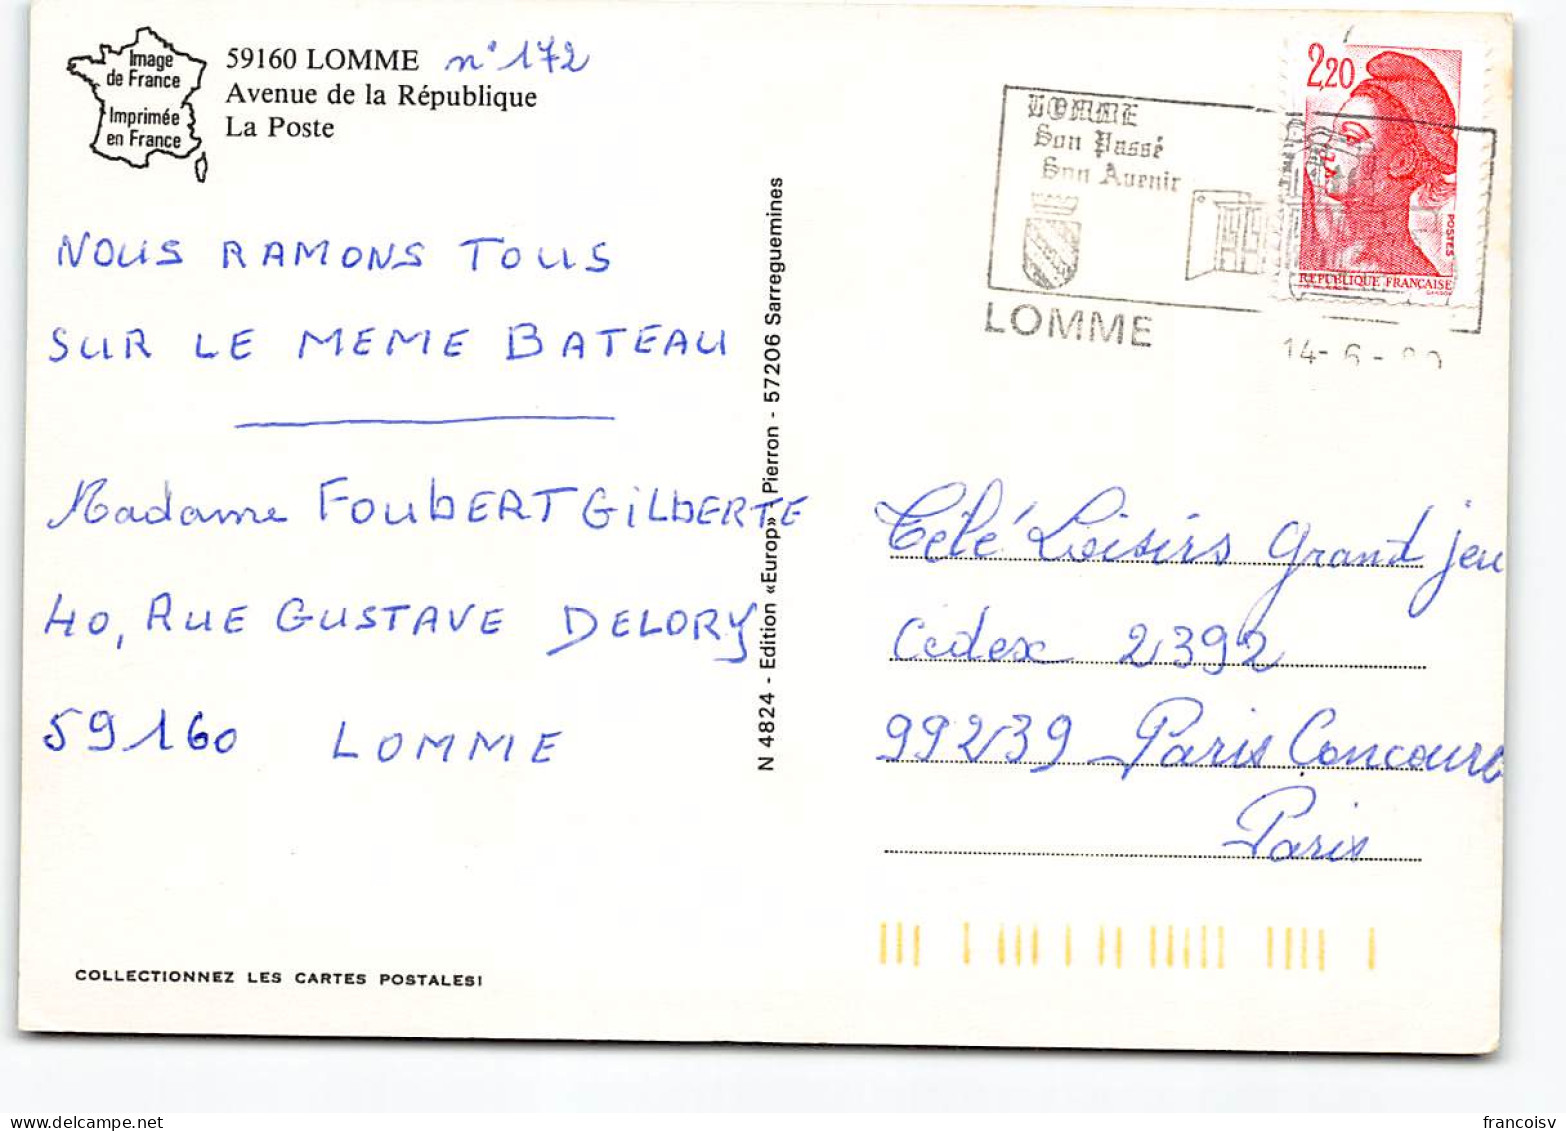 Image
de France
Imprimée
en France
59160 LOMME n° 172
Avenue de la République
La Poste
NOUS RAMONS TOUS
SUR LE MEME BATEAU
Madame FOUBERT GILBERTE
40, RUE GUSTAVE DELORY
59160 LOMME
COLLECTIONNEZ LES CARTES POSTALES!
N 4824 - Edition «Europ» Pierron - 57206 Sarreguemines
LOMME
Son Passé
Son Avenir
LOMME
14-6-
2,20
POSTES
REPUBLIQUE FRANÇAISE
GANDON
Télé Loisirs Grand jeu
Cedex 2392
99239 Paris Concours
Paris
francoisv